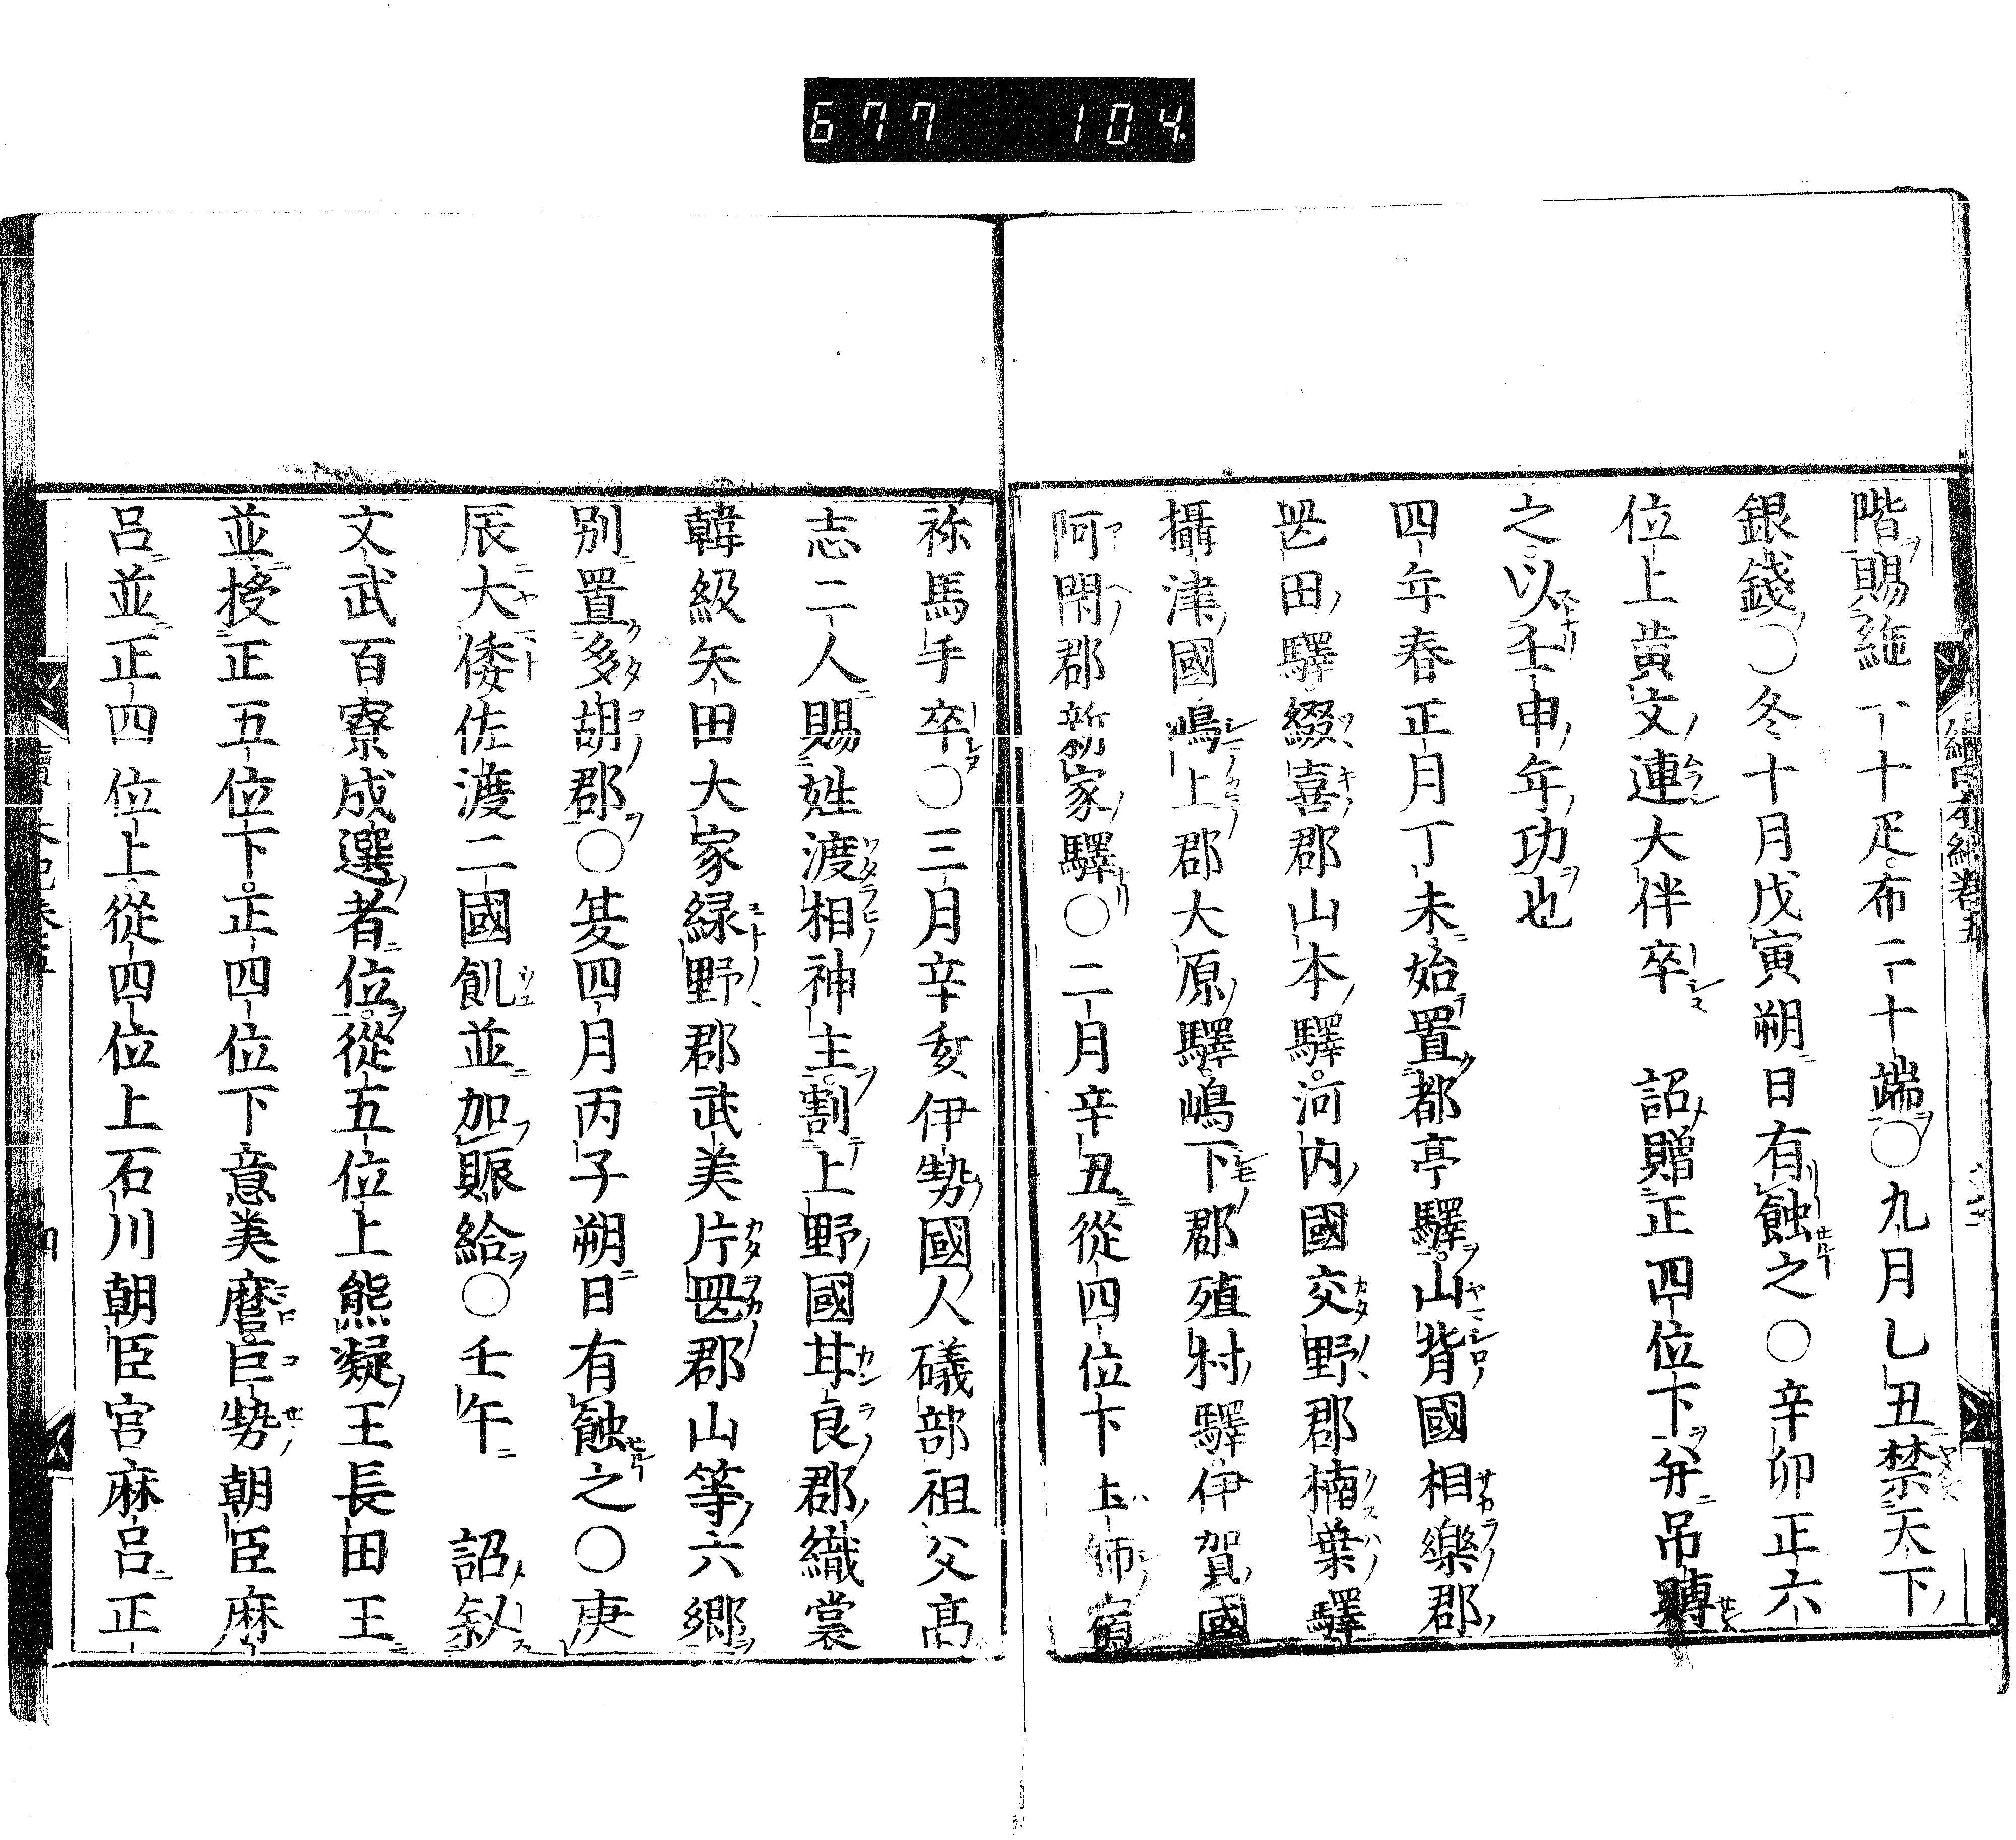 677 104
階賜絁一十疋布二十端〇九月乙丑禁天下
銀錢〇冬十月戊寅朔日有蝕之〇辛卯正六
位上黄文連大伴卒 詔贈正四位下并吊賻
之以壬申年功也
四年春正月丁未始置都亭驛山背國相樂郡
岡田驛綴喜郡山本驛河内國交野郡楠葉驛
攝津國嶋上郡大原驛嶋下郡殖村驛伊賀國
阿閇郡新家驛〇二月辛丑從四位下土師宿
祢馬手卒〇三月辛亥伊勢國人礒部祖父高
志二人賜姓渡相神主割上野國甘良郡織裳
韓級矢田大家緑野郡武美片岡郡山等六郷
別置多胡郡〇夏四月丙子朔日有蝕之〇庚
辰大倭佐渡二國飢並加賑給〇壬午 詔叙
文武百寮成選者位從五位上熊凝王長田王
並授正五位下正四位下意美麿巨勢朝臣麻
呂並正四位上從四位上石川朝臣宮麻呂正